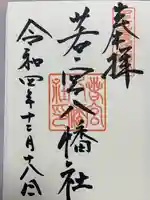 奉拝
若宮八幡社
令和四年十二月十八日